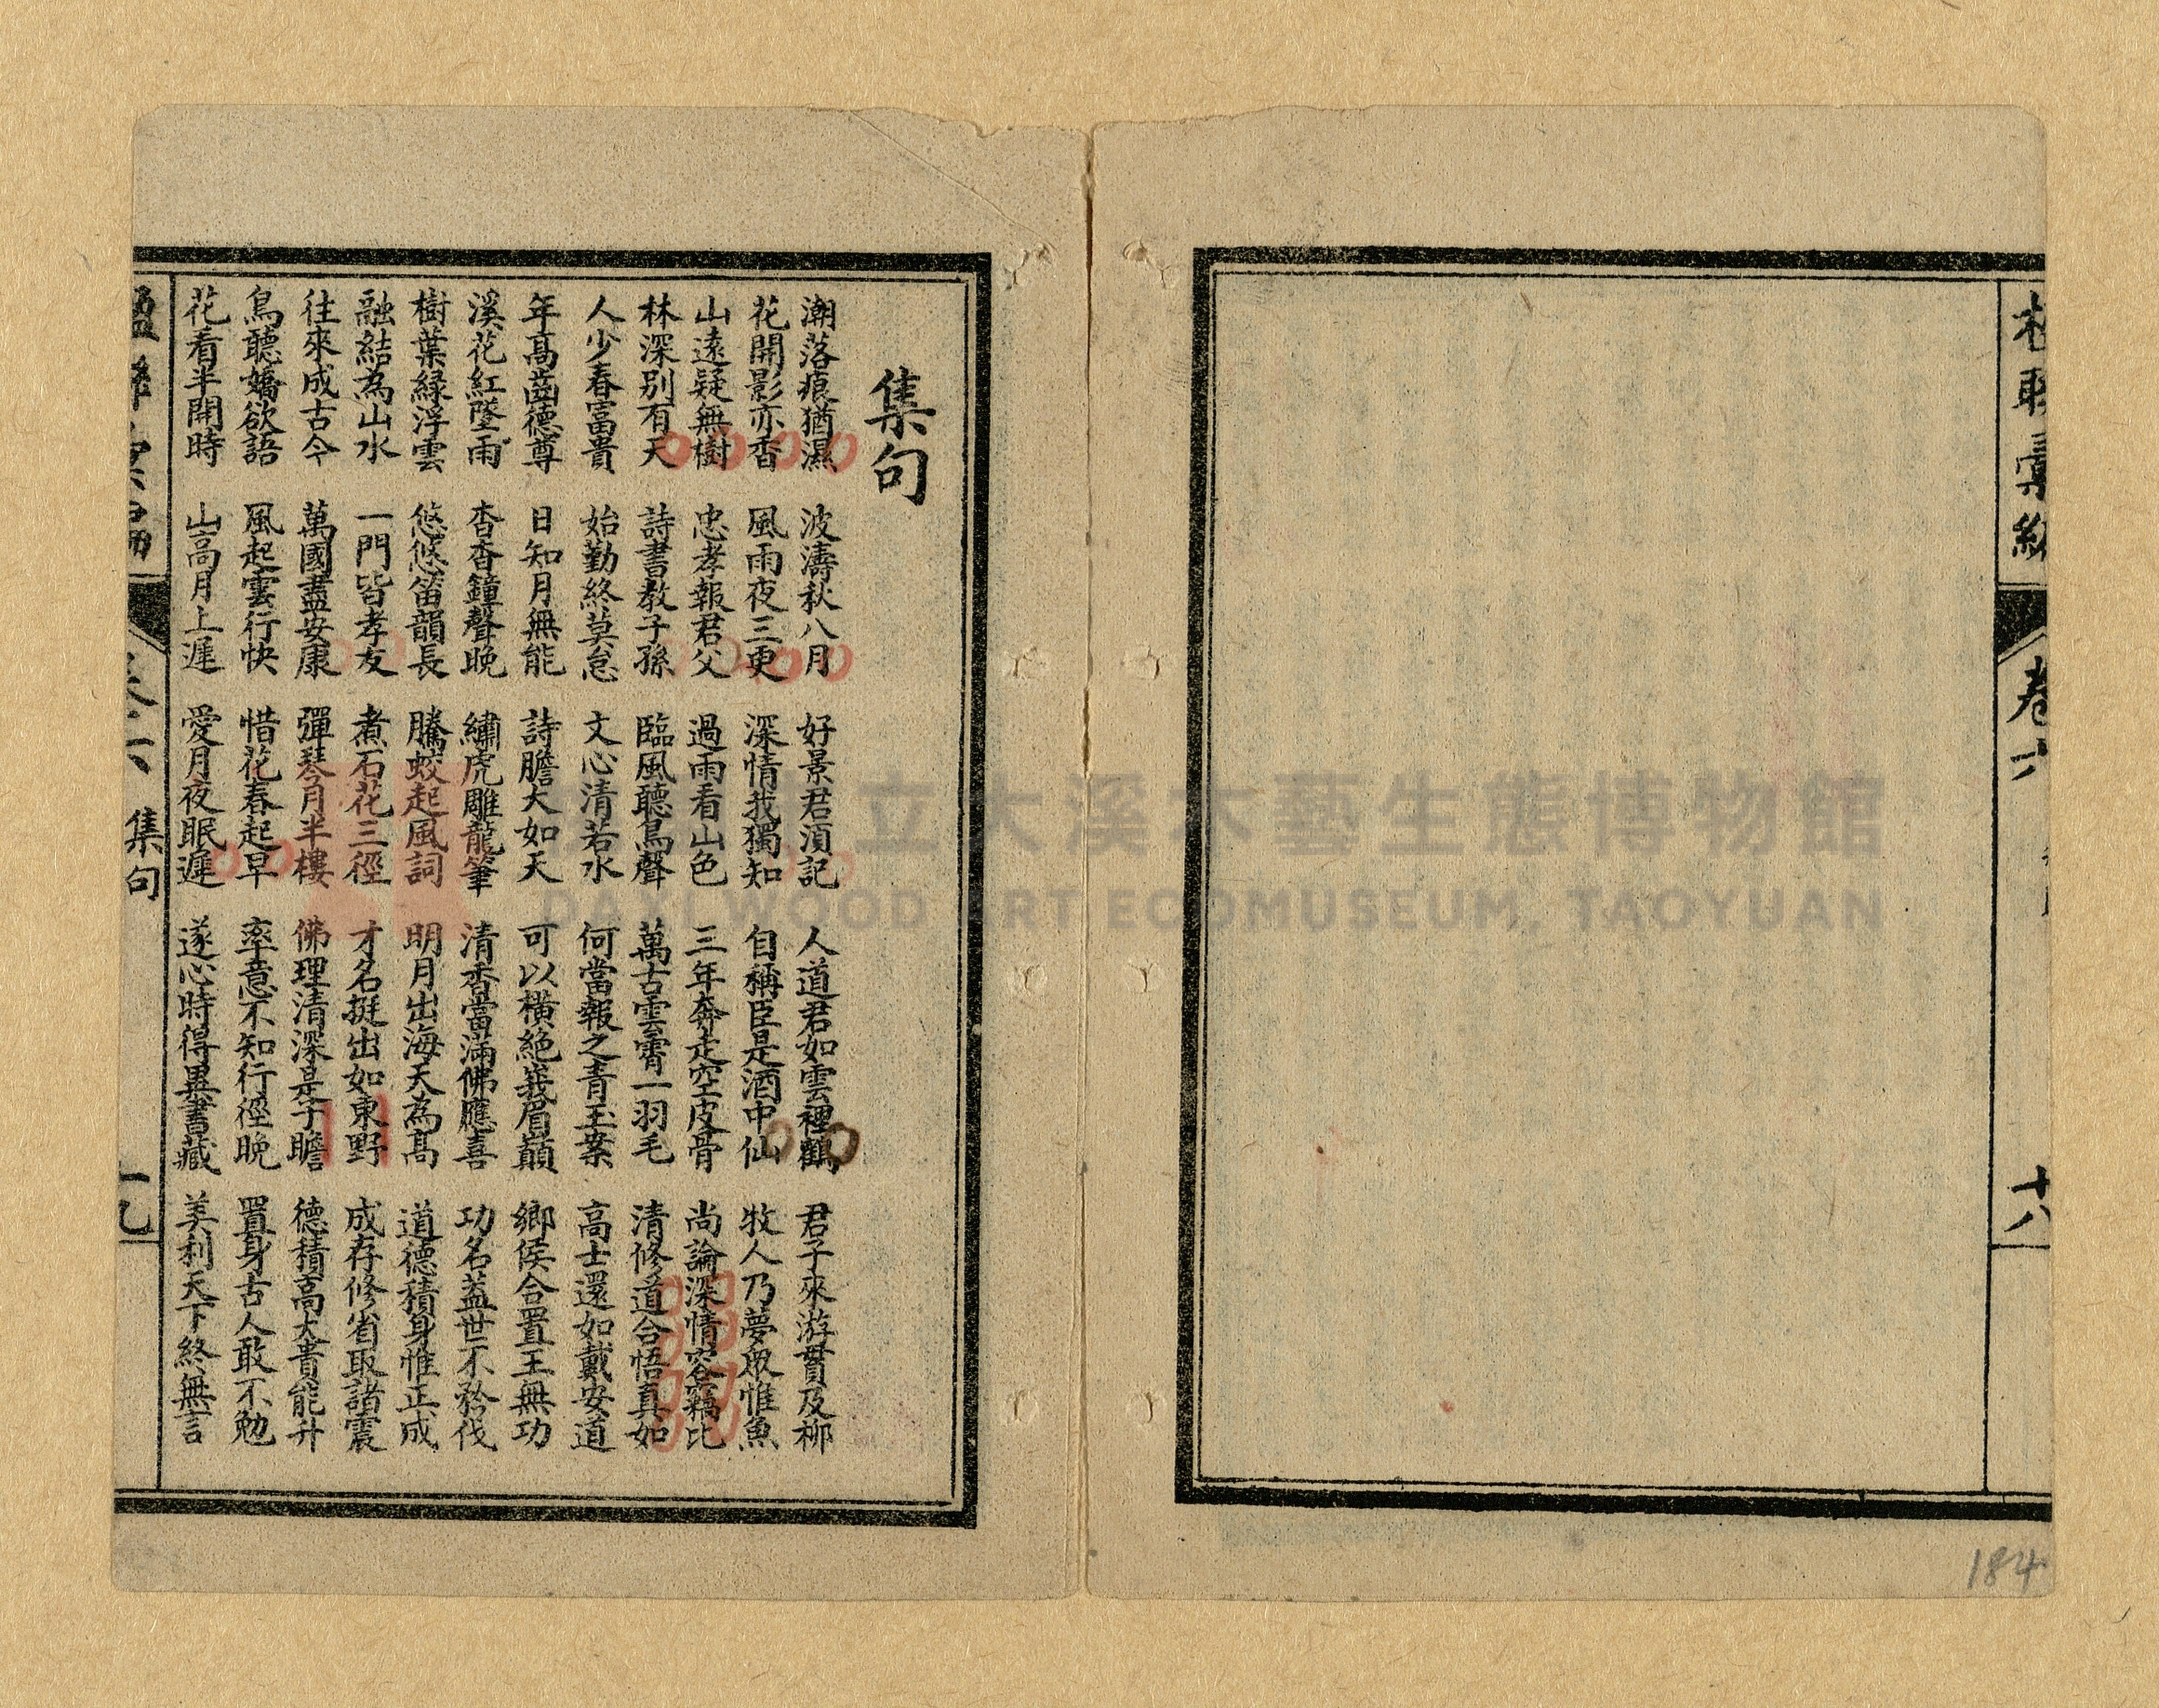 卷六
十八
184
集句
潮落痕猶濕　波濤秋八月　好景君須記　人道君如雲裡鶴　君子來游貫及柳
花開影亦香　風雨夜三更　深情我獨知　自稱臣是酒中仙　牧人乃夢眾惟魚
山遠疑無樹　忠孝報君父　過雨看山色　三年奔走空皮骨　尚論深情容竊比
林深別有天　詩書教子孫　臨風聽鳥聲　萬古雲霄一羽毛　清修道合悟真如
人少春富貴　始勤終莫怠　文心清若水　何當報之青玉案　高士還如戴安道
年高齒德尊　日知月無能　詩膽大如天　可以橫絕峩眉巔　鄉侯合置王無功
溪花紅墜雨　杳杳鐘聲晚　繡虎雕龍筆　清香當滿佛應喜　功名蓋世不矜伐
樹葉綠浮雲　悠悠笛韻長　騰蛟起風詞　明月出海天為高　道德積身惟正成
融結為山水　一門皆孝友　煮石花三徑　才名挺出如東野　成存修省取諸震
往來成古今　萬國盡安康　彈琴月半樓　佛理清深是子瞻　德積高大貴能升
鳥聽嬌欲語　風起雲行快　惜花春起早　率意不知行徑晚　置身古人敢不勉
花看半開時　山高月上遲　愛月夜眠遲　遂心時得異書藏　美利天下終無言
集句
十九
立大溪木藝生態博物館
DAXI WOOD ART ECOMUSEUM, TAOYUAN